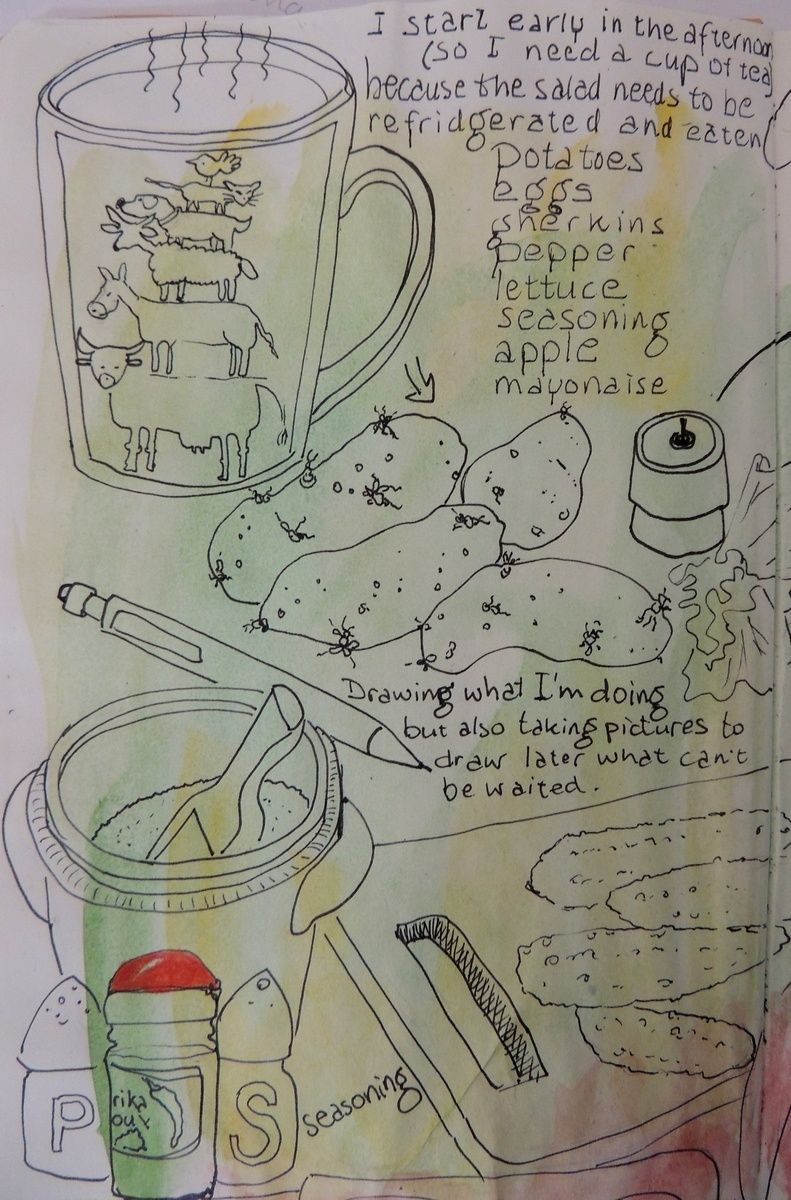 I start early in the afternoon
(so I need a cup of tea)
because the salad needs to be
refridgerated and eaten
potatoes
eggs
gherkins
pepper
lettuce
seasoning
apple
mayonaise
Drawing what I'm doing
but also taking pictures to
draw later what can't
be waited.
P
rika
ou
S
seasoning